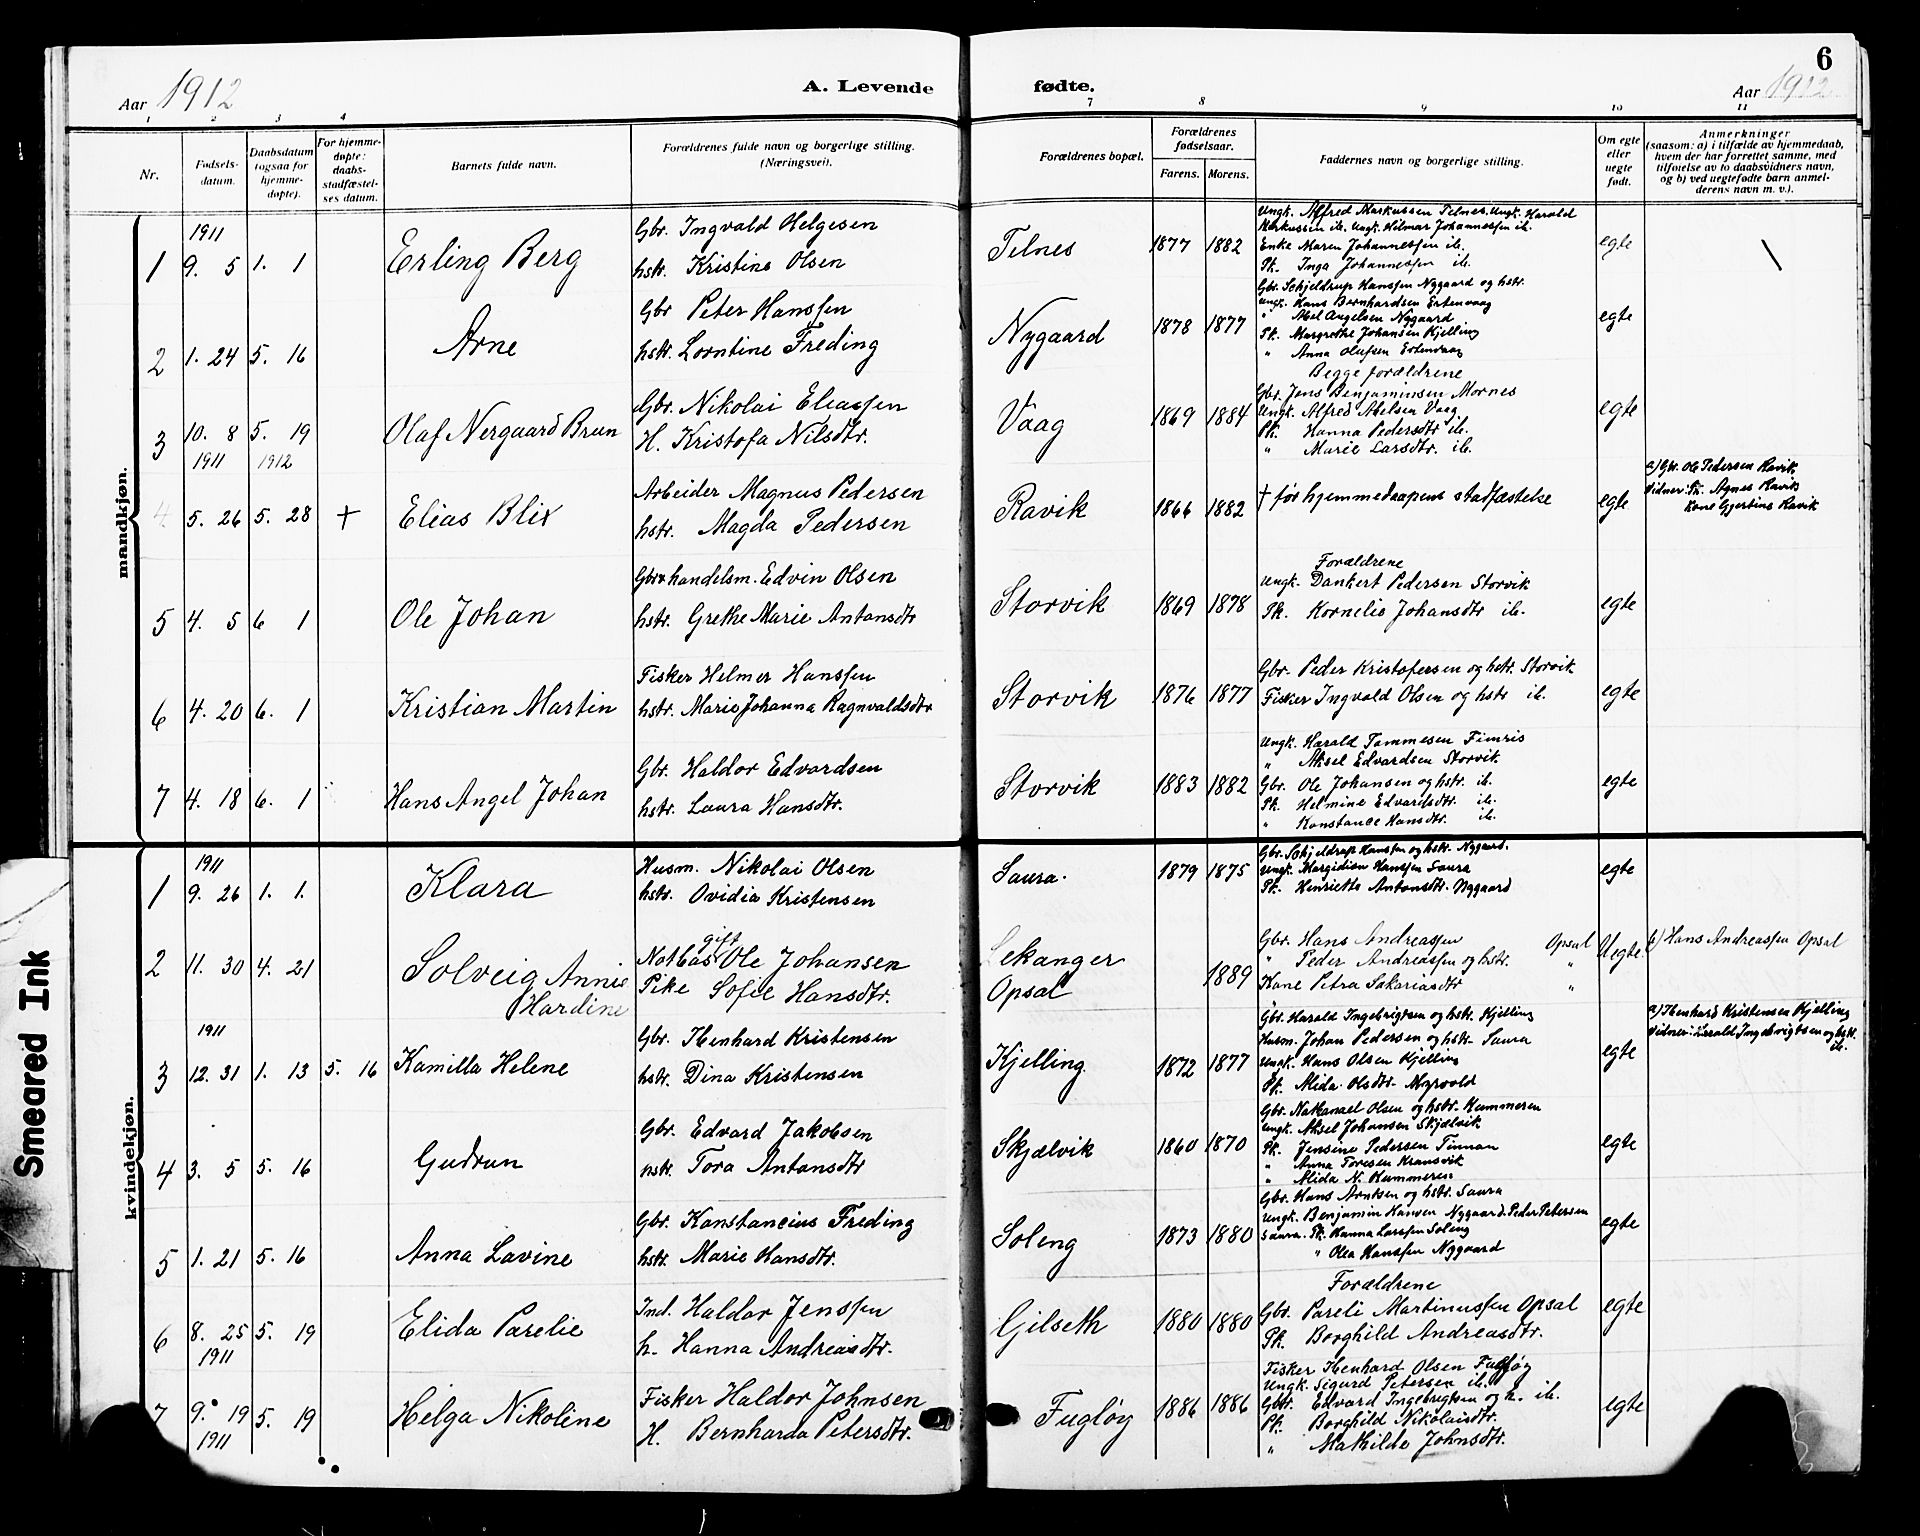 Aar 1912
A. Levende
fødte.
6
Aar 1912
1 2 3 4 7 8 9 10 11
Nr.
Fødsels-
datum.
Daabsdatum
(ogsaa for
hjemme-
døpte).
For hjemme-
døpte:
daabs-
stadfæstel-
ses datum.
Barnets fulde navn.
Forældrenes fulde navn og borgerlige stilling.
(Næringsvei).
Forældrenes bopæl.
Forældrenes
fødselsaar.
Farens. Morens.
Faddernes navn og borgerlige stilling.
Om egte
eller
uegte
født.
Anmerkninger
(saasom: a) i tilfælde av hjemmedaab,
hvem der har forrettet samme, med
tilføielse av to daabsvidners navn,
og b) ved uegtefødte barn anmel-
derens navn m. v.).
mandkjøn.
1
1911
9. 5 1. 1
Erling Berg
Gbr. Ingvald Helgesen
hstr. Kristine Olsen
Telnes
1877 1882
Ungk. Alfred Markussen Telnes. Ungk. Harald
Markussen ib. Ungk. Hilmar Johannessen ib.
Enke Maren Johannessen ib.
Pk. Inga Johannessen ib.
egte
2
1. 24 5. 16
Arne
Gbr Peter Hanssen
hstr. Lorntine Freding
Nygaard
1878 1877
Gbr. Schjeldrup Hanssen Nygaard og hstr.
Ungk. Hans Bernhardsen Ertenvaag
" Abel Angelsen Nygaard
Pk. Margrethe Johansen Kjelling
" Anna Olufsen Ertenvaag
egte
3
10. 8 5. 19
1911 1912
Olaf Nergaard Brun
Gbr. Nikolai Eliassen
H. Kristofa Nilsdtr.
Vaag
1869 1884
Begge forældrene
Gbr. Jens Benjaminsen Mornes
Ungk. Alfred Abelsen Vaag
Pk. Hanna Pedersdtr ib.
" Marie Larsdtr. ib.
egte
4
5. 26 5. 28 +
Elias Blix
Arbeider Magnus Pedersen
hstr. Magda Pedersen
Ravik
1866 1882
+ før hjemmedaapens stadfæstelse
egte
a) Gbr. Ole Pedersen Ravik
Vidner: Pk. Agnes Ravik
Kone Gjertine Ravik
5
4. 5 6 1
Ole Johan
Gbr & handelsm. Edvin Olsen
hstr. Grethe Marie Antonsdtr
Storvik
1869 1878
Forældrene
Ungk. Dankert Pedersen Storvik
Pk. Kornelie Johansdtr ib.
egte
6
4. 20 6. 1
Kristian Martin
Fisker Helmer Hanssen
hstr. Marie Johanna Ragnvaldsdtr
Storvik
1876 1877
Gbr. Peder Kristofersen og hstr. Storvik
Fisker Ingvald Olsen og hstr ib.
egte
7
4. 18 6. 1
Hans Angel Johan
Gbr. Haldor Edvardsen
hstr. Laura Hansdtr.
Storvik
1883 1882
Ungk. Harald Tommesen Fimris
" Aksel Edvardsen Storvik
Gbr. Ole Johansen og hstr. ib.
Pk. Helmine Edvardsdtr ib.
" Konstance Hansdtr. ib.
egte
kvindekjøn.
1
1911
9. 26 1. 1.
Klara
Husm. Nikolai Olsen
hstr. Ovidia Kristensen
Saura.
1879 1875
Gbr. Schjeldrup Hanssen og hstr. Nygaard.
Ungk. Margidian Hanssen Saura
Pk. Henriette Antonsdtr. Nygaard
egte
2
11. 30 4. 21
Solveig Annie
Hardine
gift
Notbas Ole Johansen
Pike Sofie Hansdtr.
Sekanger
Opsal
1889
Gbr. Hans Andreassen Opsal
" Peder Andreassen og hstr. "
Kone Petra Sakariasdtr "
Uegte
b) Hans Andreassen Opsal
3
1911
12. 31 1. 13 5. 16
Kamilla Helene
Gbr. Thenhard Kristensen
hstr. Dina Kristensen
Kjelling
1872 1877
Gbr. Harald Ingebrigtsen og hstr. Kjelling
Husm. Johan Pedersen og hstr. Saura
Ungk. Hans Olsen Kjelling
Pk. Alida Olsdtr. Myrvold
egte
a) Thenhard Kristensen Kjelling
Vidner: Harald Ingebrigtsen og hstr.
ib.
4
3. 5 5. 16
Gudrun
Gbr. Edvard Jakobsen
hstr. Tora Antonsdtr
Skjælvik
1860 1870
Gbr. Nathanael Olsen og hstr. Kummeren
Ungk. Aksel Johansen Skjælvik
Pk. Jensine Pedersen Finnan
" Anna Toresen Kransvik
" Alida N. Kummeren
egte
5
1. 21 5. 16
Anna Lavine
Gbr. Konstancius Freding
hstr. Marie Hansdtr.
Soleng
1873 1880
Gbr. Hans Arntsen og hstr. Saura
Ungk. Benjamin Hansen Nygaard. Peder Petersen
Saura. Pk. Hanna Larssen Soleng
" Olea Hanssen Nygaard
egte
6
8. 25 5. 19
1911
Elida Parelie
Ind. Haldor Jenssen
h. Hanna Andreasdtr.
Gilseth
1880 1880
Forældrene
Gbr. Pareli Martinussen Opsal
Pk. Borghild Andreasdtr.
egte
7
9. 19 5. 19
1911
Helga Nikoline
Fisker Haldor Johnsen
H. Bernharda Petersdtr.
Fugløy
1886 1886
Fisker Thenhard Olsen Fugløy
Ungk. Sigurd Petersen ib.
Gbr. Edvard Ingebrigtsen og h. ib.
Pk. Borghild Nikolaisdtr.
" Mathilde Johnsdtr.
egte
Smeared Ink